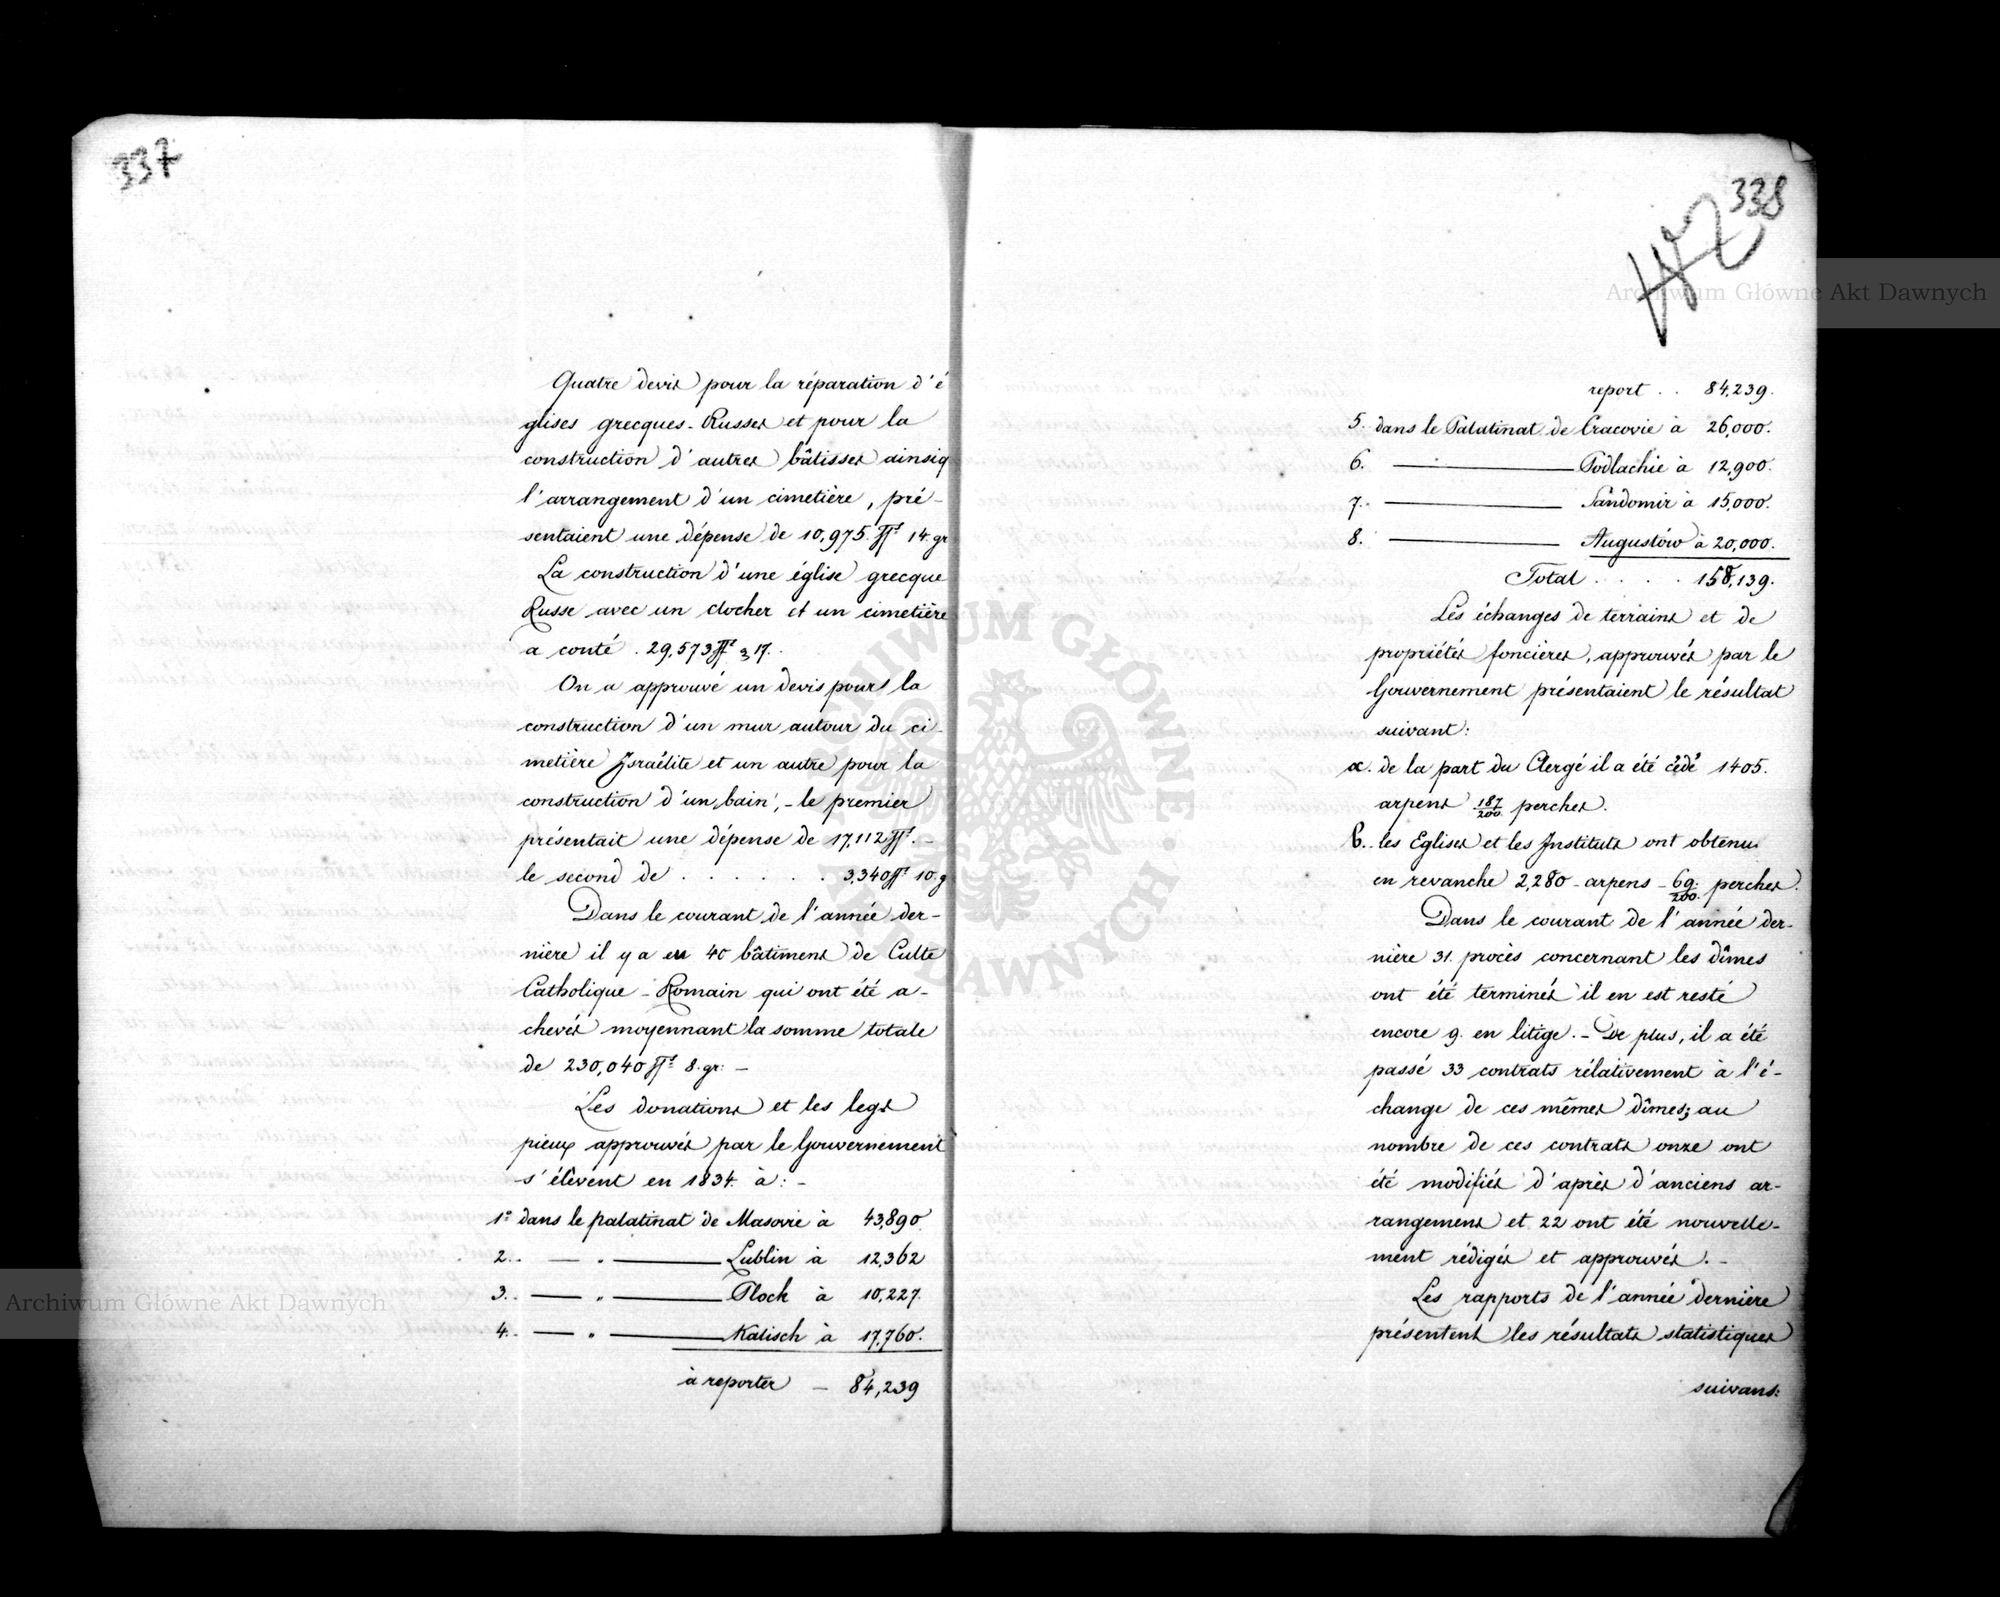 337
Quatre devis pour la réparation d'é
glises grecques-Russes et pour la
construction d'autres bâtisses ainsiq
l'arrangement d'un cimetière, pré-
sentaient une dépense de 10,975. ffs 14. gr
La construction d'une église grecque
Russe avec un clocher et un cimetière
a conté . 29,573 ffs 17.
On a approuvé un devis pour la
construction d'un mur autour du ci-
metière Israélite et un autre pour la
construction d'un bain, - le premier
présentait une dépense de 17,112 ffs. -
le second de . . . . . . 3,340 ffs 10. g
Dans le courant de l'année der-
nière il y a eu 40 bâtimens de Culte
Catholique-Romain qui ont été a-
chevés moyennant la somme totale
de 230,040 ffs 8. gr: -
Les donations et les legs
pieux approuvés par le Gouvernement
s'élèvent en 1834. à: -
1° dans le palatinat de Masovie à 43,890
2. . — " ——— Lublin à 12,362
3. . — " ——— Plock à 10,227.
4. . — " ——— Kalisch à 17,760.
à reporter — 84,239
338
report . . 84,239.
5. dans le Palatinat de Cracovie à 26,000.
6. ——— Podlachie à 12,900.
7. ——— Sandomir à 15,000.
8. ——— Augustów à 20,000.
Total . . . . 158,139.
Les échanges de terrains et de
propriétés foncières, approuvés par le
Gouvernement présentaient le résultat
suivant:
a. de la part du Clergé il a été cédé 1405.
arpens 187/200 perches.
b. les Eglises et les Instituts ont obtenu
en revanche 2,280 - arpens - 69/200. perches.
Dans le courant de l'année der-
nière 31. procès concernant les dîmes
ont été terminés il en est resté
encore 9. en litige. - De plus, il a été
passé 33 contrats rélativement à l'é-
change de ces mêmes dîmes; au
nombre de ces contrats onze ont
été modifiés d'après d'anciens ar-
rangemens et 22 ont été nouvelle-
ment rédigés et approuvés. -
Les rapports de l'année dernière
présentent les résultats statistiques
suivans:
Archiwum Główne Akt Dawnych
Archiwum Główne Akt Dawnych
ARCHIWUM GŁÓWNE AKT DAWNYCH